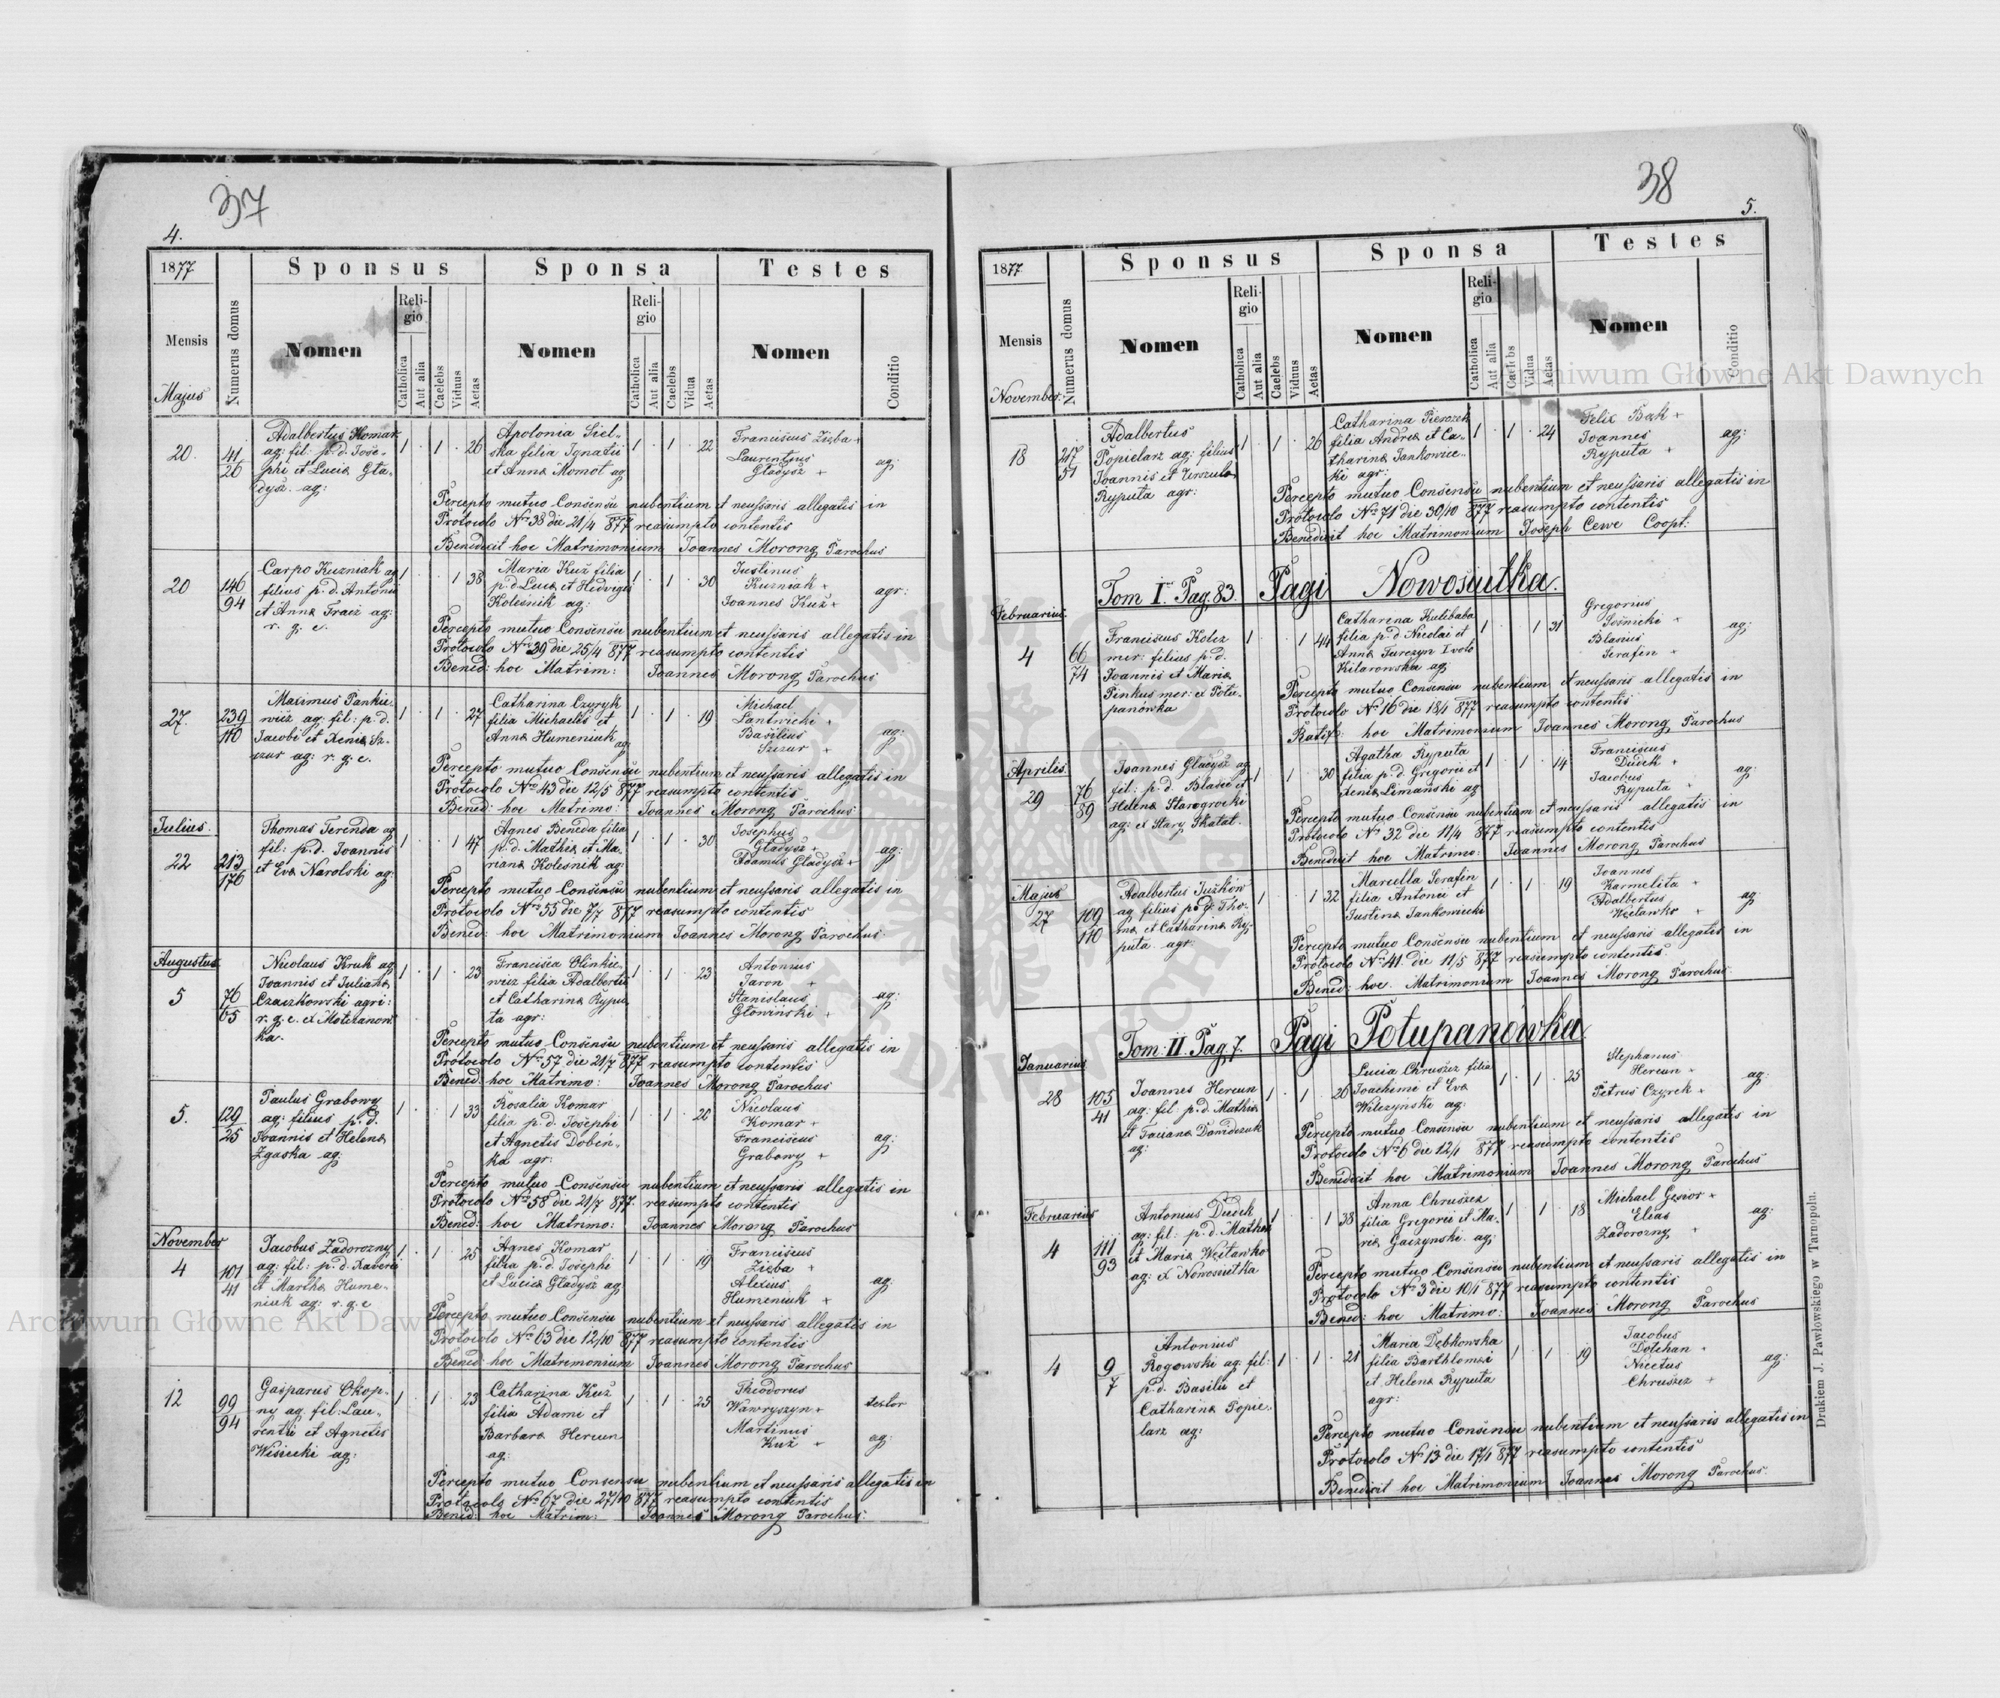 37
4.
1877
Sponsus
Sponsa
Testes
Mensis
Numerus domus
Nomen
Religio
Catholica
Aut alia
Caelebs
Viduus
Aetas
Nomen
Religio
Catholica
Aut alia
Caelebs
Vidua
Aetas
Nomen
Conditio
Majus
20. 41/26
Adalbertus Komar
ag: fil: p. d. Jose-
phi et Lucia Gła-
dysz. ag:
1 1 26
Apolonia Siel-
ska filia Ignatii
et Anna Momot ag
1 1 22
Franciscus Zięba +
Laurentius
Gładysz +
ag:
Percepto mutuo Consensu nubentium et neussaris allegatis in
Protocolo No 38 die 21/4 877 reasumpto contentis
Benedixit hoc Matrimonium Joannes Morong Parochus
20 146/94
Carpo Kuzniak ag
filius p. d. Antonii
et Anna Tracz ag:
r. g. c.
1 1 38
Maria Kuž filia
p. d. Luca et Hedvigis
Kolesnik ag:
1 1 30
Justinus
Kuzniak +
Joannes Kuž +
agr:
Percepto mutuo Consensu nubentium et neussaris allegatis in
Protocolo No 39 die 25/4 877 reasumpto contentis
Bened: hoc Matrim: Joannes Morong Parochus
27. 239/110
Maximus Pankie-
wicz ag: fil: p. d.
Jacobi et Xenia Sz-
czur ag: r. g. c.
1 1 27
Catharina Czyryk
filia Michaelis et
Anna Humeniuk
ag:
1 1 19
Michael
Basilius
Szczur +
ag:
Percepto mutuo Consensu nubentium et neussaris allegatis in
Protocolo No 43 die 12/5 877 reasumpto contentis
Bened: hoc Matrimo: Joannes Morong Parochus
Julius.
22 213/176
Thomas Ferenda ag
fil: p. d. Joannis
et Eva Narolski ag:
1 1 47
Agnes Beneda filia
p. d. Mathia et Ma-
riana Kolesnik ag:
1 1 30
Josephus
Gładysz +
Adamus Gładysz +
ag:
Percepto mutuo Consensu nubentium et neussaris allegatis in
Protocolo No 55 die 7/7 877 reasumpto contentis
Bened: hoc Matrimonium Joannes Morong Parochus
Augustus
5 76/65
Nicolaus Kruk ag
Joannis et Juliana
Czaczkowski agri:
r. g. c. ex Mołczanow
ka.
1 1 23
Francisca Olinkie-
wicz filia Adalberti
et Catharina Rypu-
ta agr:
1 1 23
Antonius
Jaron +
Stanislaus
Głowinski +
ag:
Percepto mutuo Consensu nubentium et neussaris allegatis in
Protocolo No 57 die 21/7 877 reasumpto contentis
Bened: hoc Matrimo: Joannes Morong Parochus
5. 129/25
Paulus Grabowy
ag: filius p. d.
Joannis et Helena
Zgaska ag:
1 1 33
Rosalia Komar
filia p. d. Josephi
et Agnetis Doben-
ka agr:
1 1 20
Nicolaus
Komar +
Franciscus
Grabowy +
ag:
Percepto mutuo Consensu nubentium et neussaris allegatis in
Protocolo No 58 die 21/7 877. reasumpto contentis
Bened: hoc Matrimo: Joannes Morong Parochus
November
4 101/41
Jacobus Zadorozny
ag: fil: p. d. Xaverii
et Martha Hume-
niuk ag: r. g. c
1 1 25
Agnes Komar
filia p. d. Josephi
et Lucia Gładysz ag
1 1 19
Franciscus
Zięba +
Alexius
Humeniuk +
ag:
Percepto mutuo Consensu nubentium et neussaris allegatis in
Protocolo No 63 die 12/10 877 reasumpto contentis
Bened: hoc Matrimonium Joannes Morong Parochus
12 99/94
Gasparus Okop-
ny ag. fil: Lau-
rentii et Agnetis
Wisiecki ag:
1 1 23
Catharina Kuž
filia Adami et
Barbara Hercun
ag:
1 1 23
Theodorus
Wawryszyn +
Martinus
Kuž +
textor
ag:
Percepto mutuo Consensu nubentium et neussaris allegatis in
Protocolo No 67 die 27/10 877 reasumpto contentis
Bened: hoc Matrim: Joannes Morong Parochus
38
5.
1877
Sponsus
Sponsa
Testes
Mensis
Numerus domus
Nomen
Religio
Catholica
Aut alia
Caelebs
Viduus
Aetas
Nomen
Religio
Catholica
Aut alia
Caelebs
Vidua
Aetas
Nomen
Conditio
November.
18 217/51
Adalbertus
Popielarz ag: filius
Joannis et Urszula
Ryputa agr:
1 1 26
Catharina Pierozek
filia Andrea et Ca-
tharina Jankowie-
ki agr:
1 1 24
Felix Bąk +
Joannes
Ryputa +
ag:
Percepto mutuo Consensu nubentium et neussaris allegatis in
Protocolo No 71 die 30/10 877 reasumpto contentis
Benedixit hoc Matrimonium Joseph Cewe Coopt:
Tom I. Pag. 83. Pagi Nowosiulka.
Februarius.
4 66/74
Franciscus Kolcz
mer: filius p. d.
Joannis et Maria
Pinkus mer: ex Potu-
panówka
1 1 44
Catharina Kulibaba
filia p. d. Nicolai et
Anna Turczyn I voto
Kilarowska ag
1 1 31
Gregorius
Sośnicki +
Blasius
Serafin +
ag:
Percepto mutuo Consensu nubentium et neussaris allegatis in
Protocolo No 16 die 18/1 877 reasumpto contentis
Ratif: hoc Matrimonium Joannes Morong Parochus
Aprilis.
29 76/89
Joannes Gładysz ag
fil: p. d. Blasii et
Helena Starogrocki
ag: ex Stary Skałat.
1 1 30
Agatha Ryputa
filia p. d. Gregorii et
Xenia Limanski ag
1 1 14
Franciscus
Dudek +
Jacobus
Ryputa +
ag:
Percepto mutuo Consensu nubentium et neussaris allegatis in
Protocolo No 32 die 11/4 877 reasumpto contentis
Benedixit hoc Matrimo: Joannes Morong Parochus
Majus
27 109/110
Adalbertus Juzków
ag filius p. d. Tho-
ma et Catharina Ry-
puta agr:
1 1 32
Marcella Serafin
filia Antonii et
Justina Jankowiecki
1 1 19
Joannes
Karmelita +
Adalbertus
Węcławko +
ag
Percepto mutuo Consensu nubentium et neussaris allegatis in
Protocolo No 41. die 11/5 877 reasumpto contentis.
Bened: hoc. Matrimonium Joannes Morong Parochus
Tom: II. Pag. 7. Pagi Potupanówka
Januarius
28 105/41
Joannes Hercun
ag: fil: p. d. Mathia
et Taciana Dawidczuk
ag:
1 1 26
Lucia Chruszcz filia
Joachimi et Eva
Wilczyński ag:
1 1 25
Stephanus
Hercun +
Petrus Czyrek +
ag:
Percepto mutuo Consensu nubentium et neussaris allegatis in
Protocolo No 6 die 12/1 877 reasumpto contentis
Benedixit hoc Matrimonium Joannes Morong Parochus
Februarius
4 111/93
Antonius Dudek
ag: fil: p. d. Mathai
et Maria Węcławko
ag: ex Nowosiułka
1 1 38
Anna Chruszcz
filia Gregorii et Ma-
ria Gaczynski. ag:
1 1 18
Michael Gęsior +
Elias
Zadorozny +
ag:
Percepto mutuo Consensu nubentium et neussaris allegatis in
Protocolo No 3 die 10/1 877 reasumpto contentis
Bened: hoc Matrimo: Joannes Morong Parochus
4 9/7
Antonius
Rogowski ag: fil:
p. d. Basilii et
Catharina Popie-
larz ag:
1 1 21
Maria Dębkowska
filia Barthlomai
et Helena Ryputa
agr:
1 1 19
Jacobus
Dolchan +
Nicetus
Chruszcz +
ag:
Percepto mutuo Consensu nubentium et neussaris allegatis in
Protocolo No 13 die 17/1 877 reasumpto contentis
Benedixit hoc Matrimonium Joannes Morong Parochus.
Drukiem J. Pawłowskiego w Tarnopolu.
Archiwum Główne Akt Dawnych
Archiwum Główne Akt Dawnych